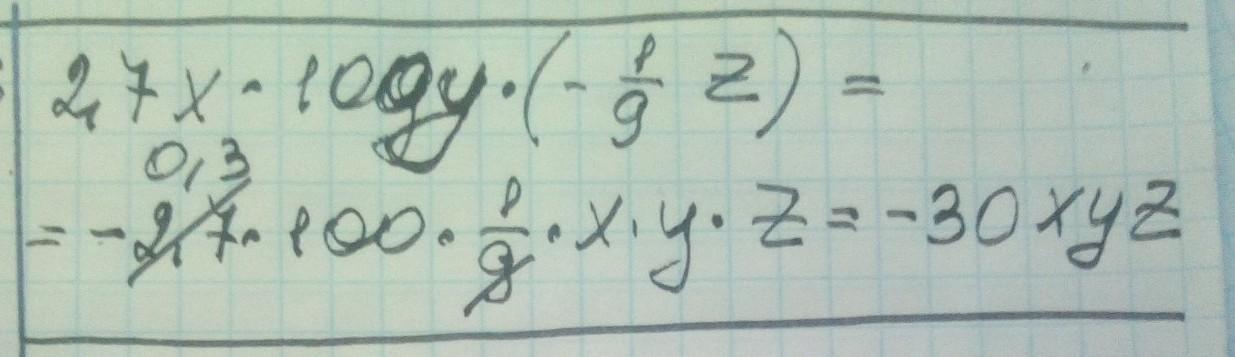 2,7x · 100y · (- 1/9 z) =
0,3
= - 2,7 · 100 · 1/9 · x · y · z = -30xyz